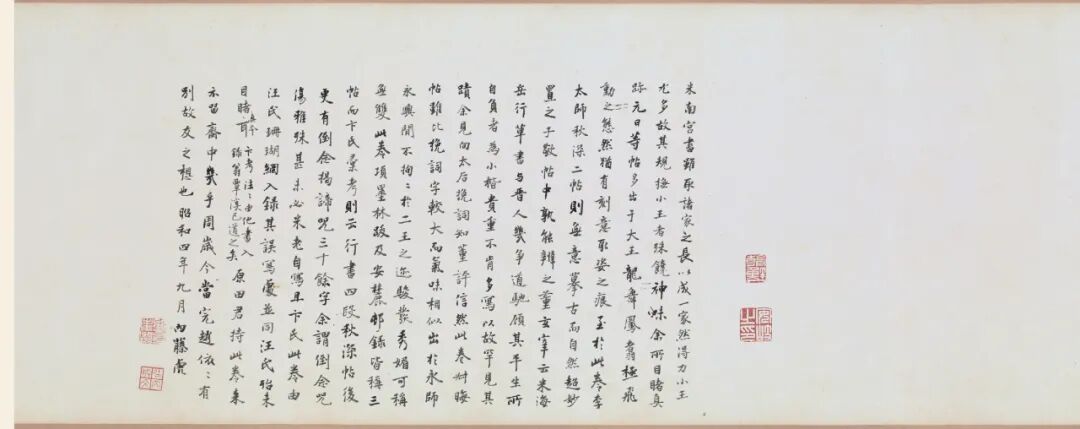 米南宮書雖取諸家之長以成一家然得力小王
尤多故其規橅小王者殊饒神味余所目睹真
跡元日等帖多出于大王龍舞鳳翥極飛
動之態然猶有刻意取姿之痕至於此卷李
太師秋深二帖則無意摹古而自然超妙
置之子敬帖中孰能辨之董玄宰云米海
岳行草書與晉人幾爭道馳顧其平生所
自負者為小楷貴重不肯多寫以故罕見其
蹟余見向太后挽詞知董評信然此卷
帖雖比挽詞字較大而氣味相似出於永師
永興間不拘〻於二王之迹駿發秀媚可稱
無雙此卷項墨林跋及安麓邨錄皆稱三
帖而卞氏彙考則云行書四段秋深帖後
更有倒念揭諦咒三十餘字余謂倒念咒
傷雅殊甚未必米老自寫且卞氏此卷由
汪氏珊瑚網入錄其誤寫處並同汪氏殆未
目睹真 卞考注〻由他書入
錄翁覃溪已道之矣 原田君持此卷來
示留齋中幾乎周歲今當完趙依〻有
別故友之想也 昭和四年九月 內藤虎